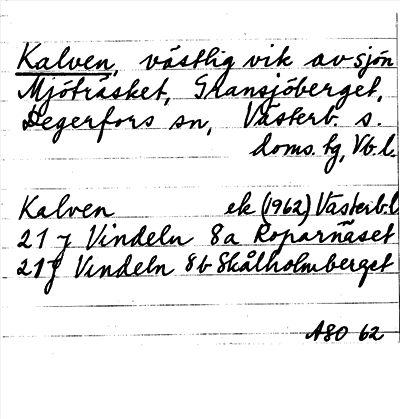 Kalven, västlig vik av sjön
Mjöträsket, Gransjöberget,
Degerfors sn, Västerb. s.
doms. tg, Vb. l.
Kalven ek (1962) Västerb.l
21 J Vindeln 8a Roparnäset
21 J Vindeln 8b Skålholmberget
ASO 62